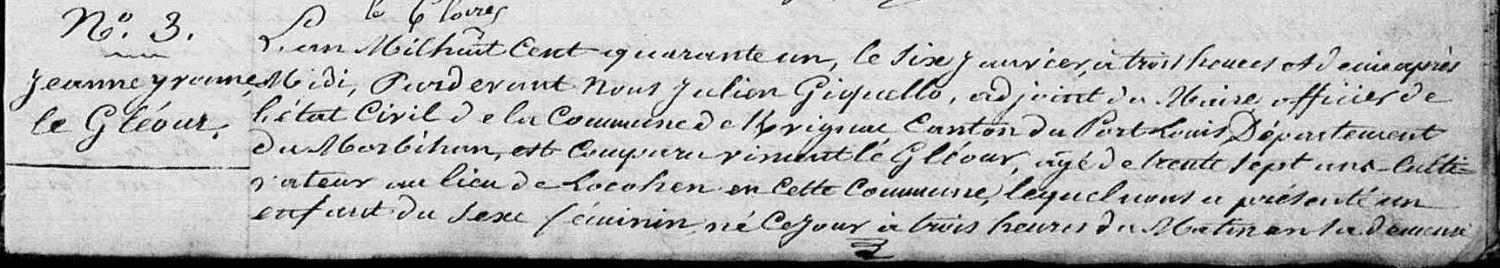 le Gloires
N.o 3.
Jeanne yvonne
le Gléour.
L'an Mil huit Cent quarante un, le six Janvier, à trois heures et demie après
Midi, Pardevant Nous Julien Giquello, adjoint du Maire officier de
l'état Civil de la Commune de Kvrignac Canton du Port Louis, Département
du Morbihan, est Comparu vincent le Gléour, agé de trente sept ans Culti-
vateur au lieu de Locohen en Cette Commune, lequel nous a présenté un
enfant du sexe féminin, né Ce jour à trois heures du Matin en sa demeure